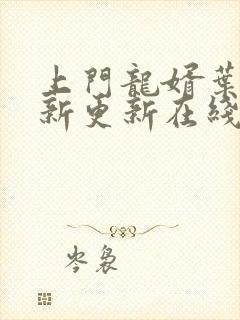 上門龍婿葉
新更新在綫
岑裊